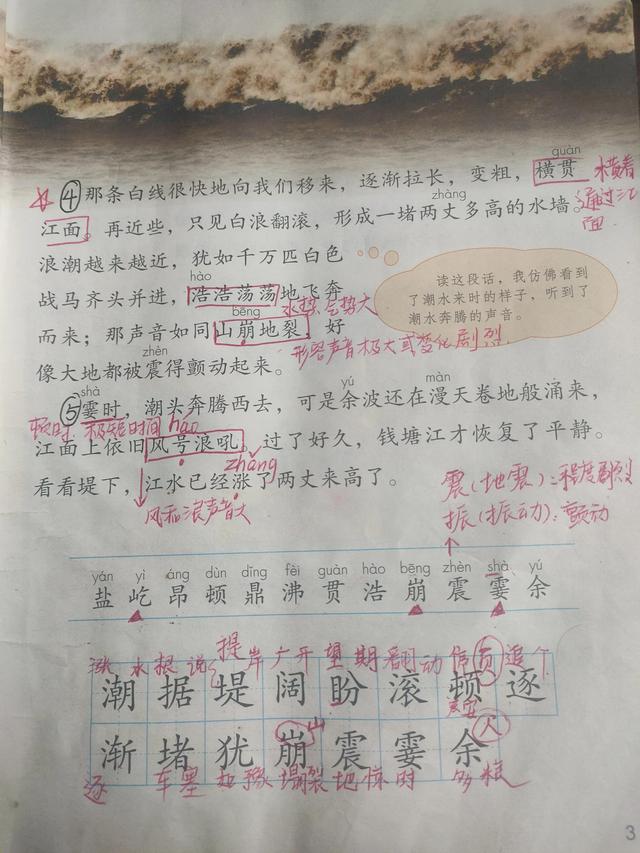 guàn
④那条白线很快地向我们移来，逐渐拉长，变粗，横贯 横着
zhàng
江面。再近些，只见白浪翻滚，形成一堵两丈多高的水墙。 通过江
面
浪潮越来越近，犹如千万匹白色
hào
战马齐头并进，浩浩荡荡地飞奔
bēng 水势
而来；那声音如同山崩地裂，好
形容声音极大或变化剧烈
zhèn
像大地都被震得颤动起来。
读这段话，我仿佛看到
了潮水来时的样子，听到了
潮水奔腾的声音。
shà yú màn
⑤霎时，潮头奔腾西去，可是余波还在漫天卷地般涌来，
顿时 极短时间 háo
江面上依旧风号浪吼。过了好久，钱塘江才恢复了平静。
zhǎng
看看堤下，江水已经涨了两丈来高了。
风和浪声音大
震（地震）：程度剧烈
振（振动）：颤动
yán yì áng dùn dǐng fèi guàn hào bēng zhèn shà yú
盐 屹 昂 顿 鼎 沸 贯 浩 崩 震 霎 余
水 根 说 提 岸 广 开 望 期 翻 动 停 页 追 个
潮 据 堤 阔 盼 滚 顿 逐
山 人
渐 堵 犹 崩 震 霎 余
逐 车 塌 裂 地 惊 时 多 粮
3